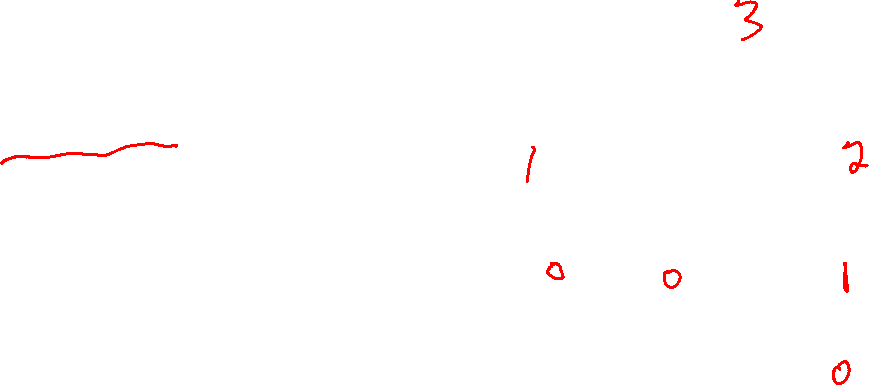 3
1 2
0 0 1
0